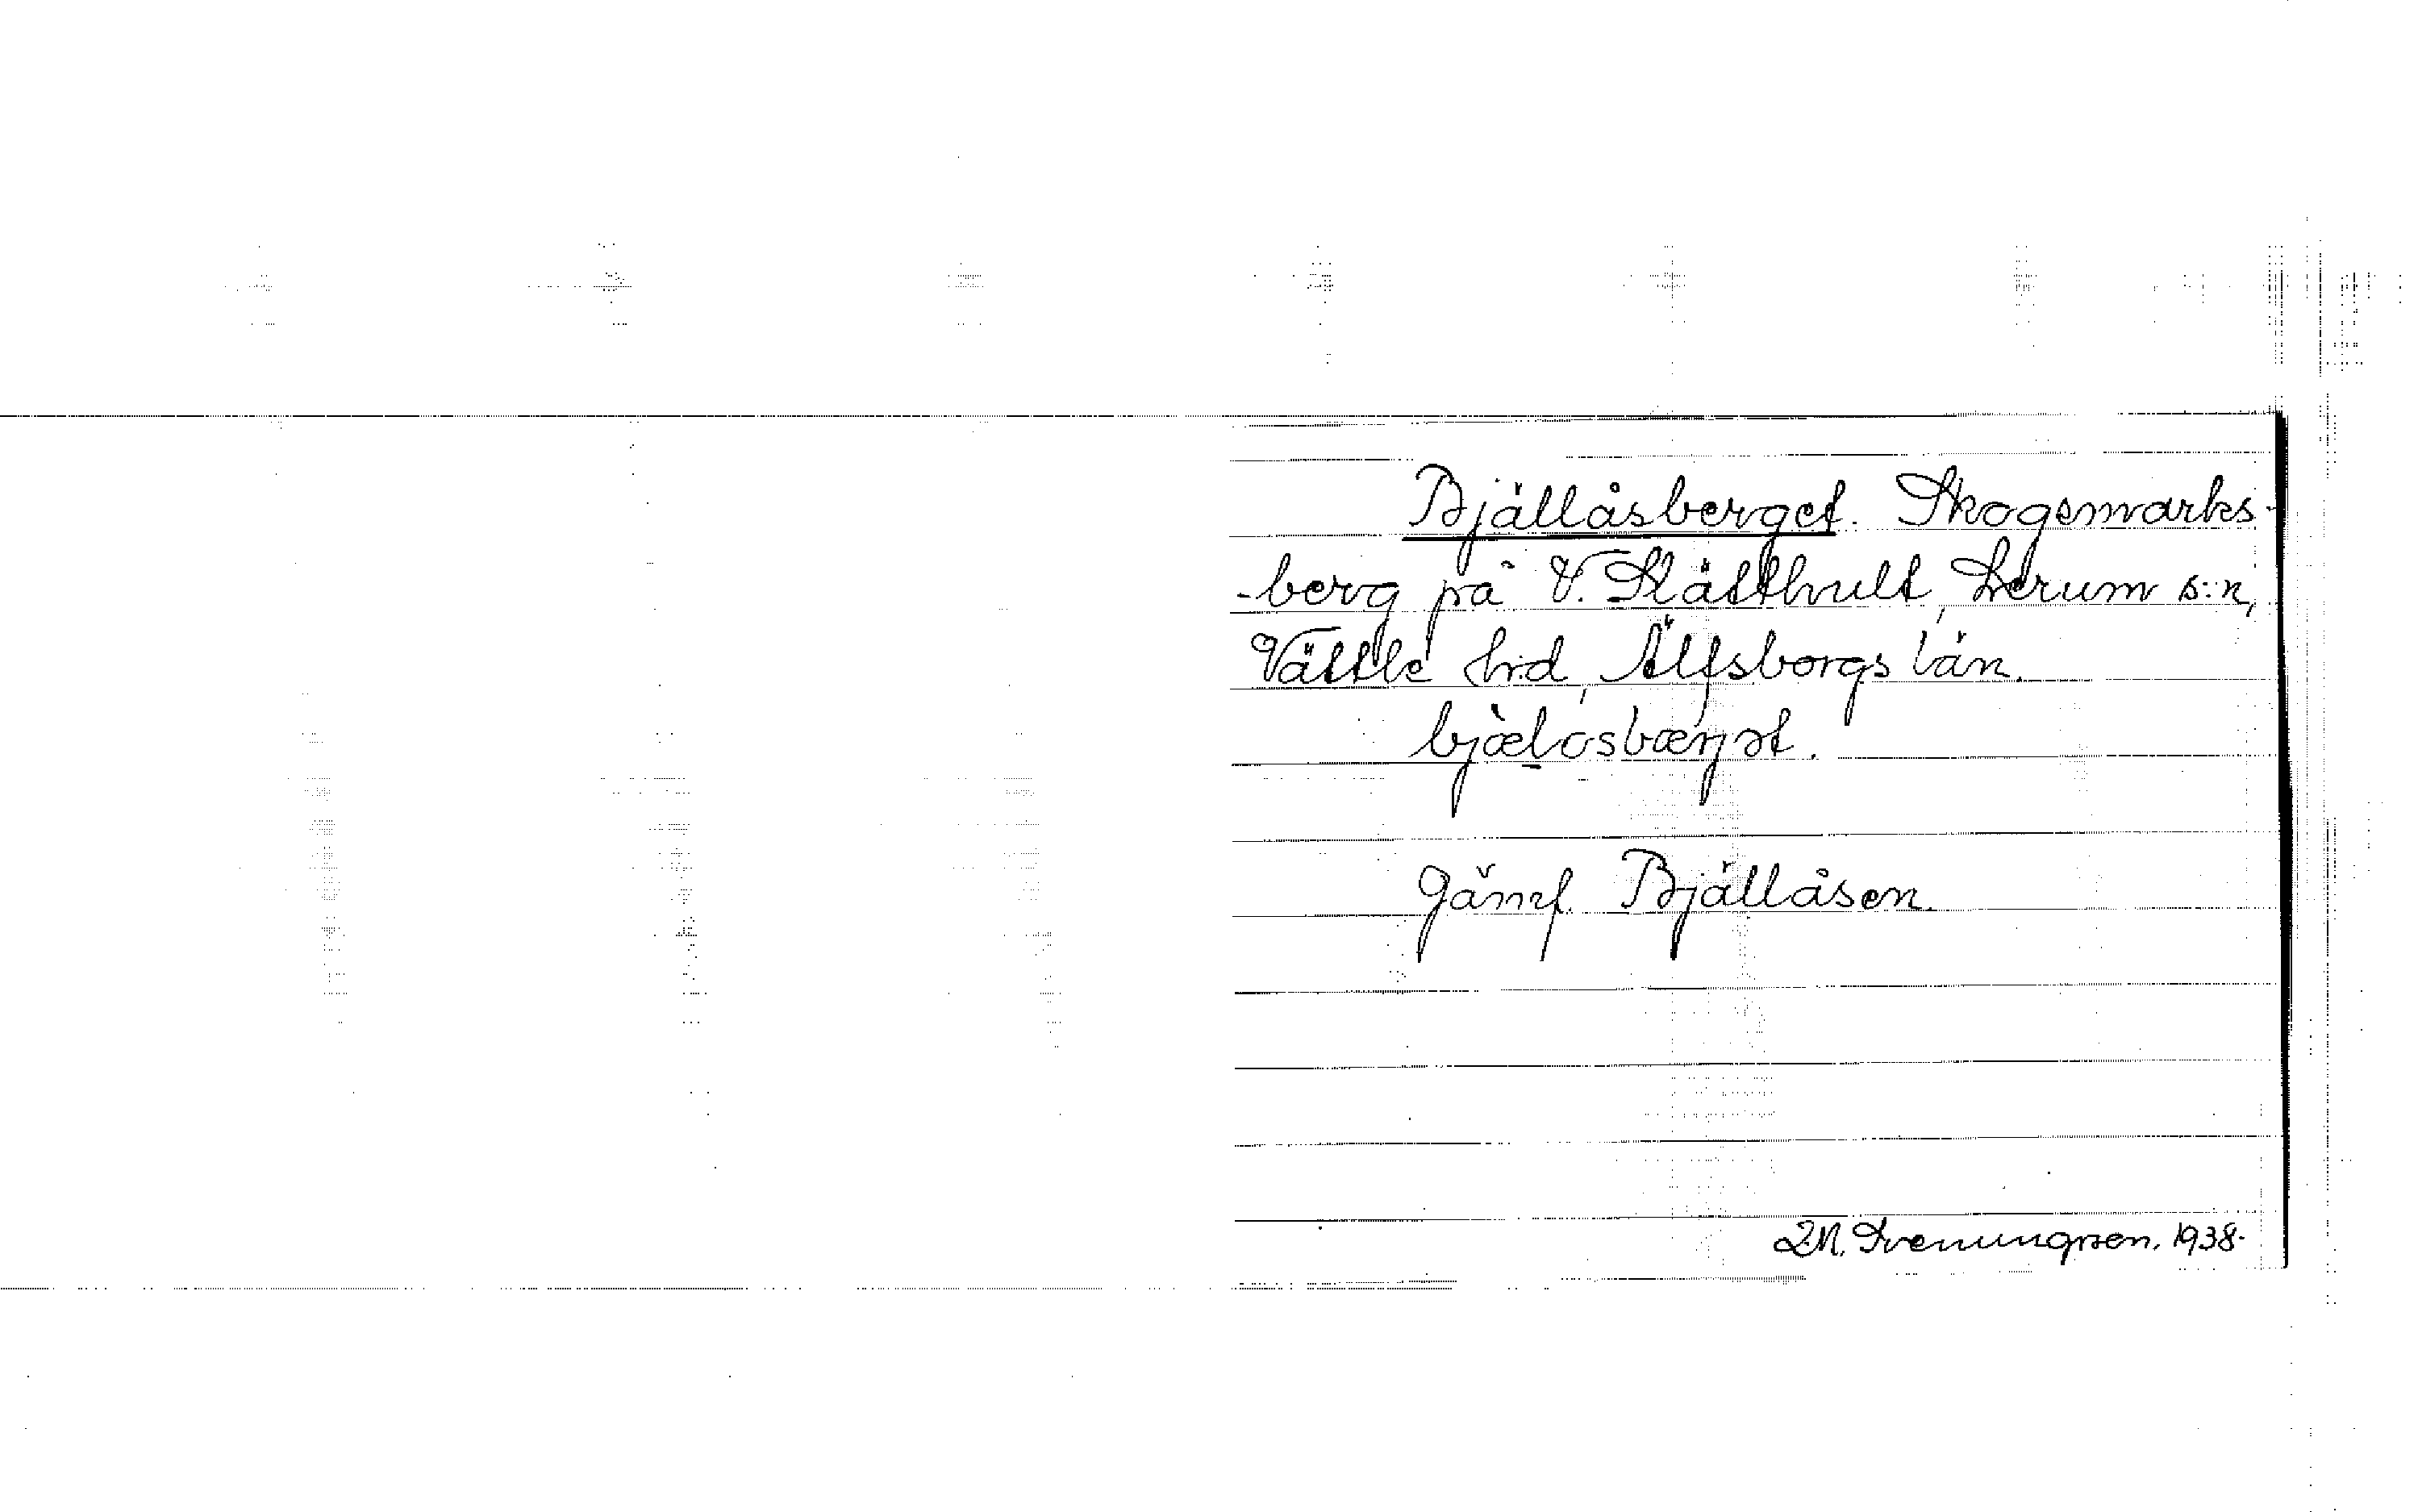 Bjällåsberget. Skogsmarks-
-berg på V. Slätthult, Lerum s:n,
Vättle h:d, Älfsborgs län.
bjælåsbærjət.
Jämf. Bjällåsen.
1938.